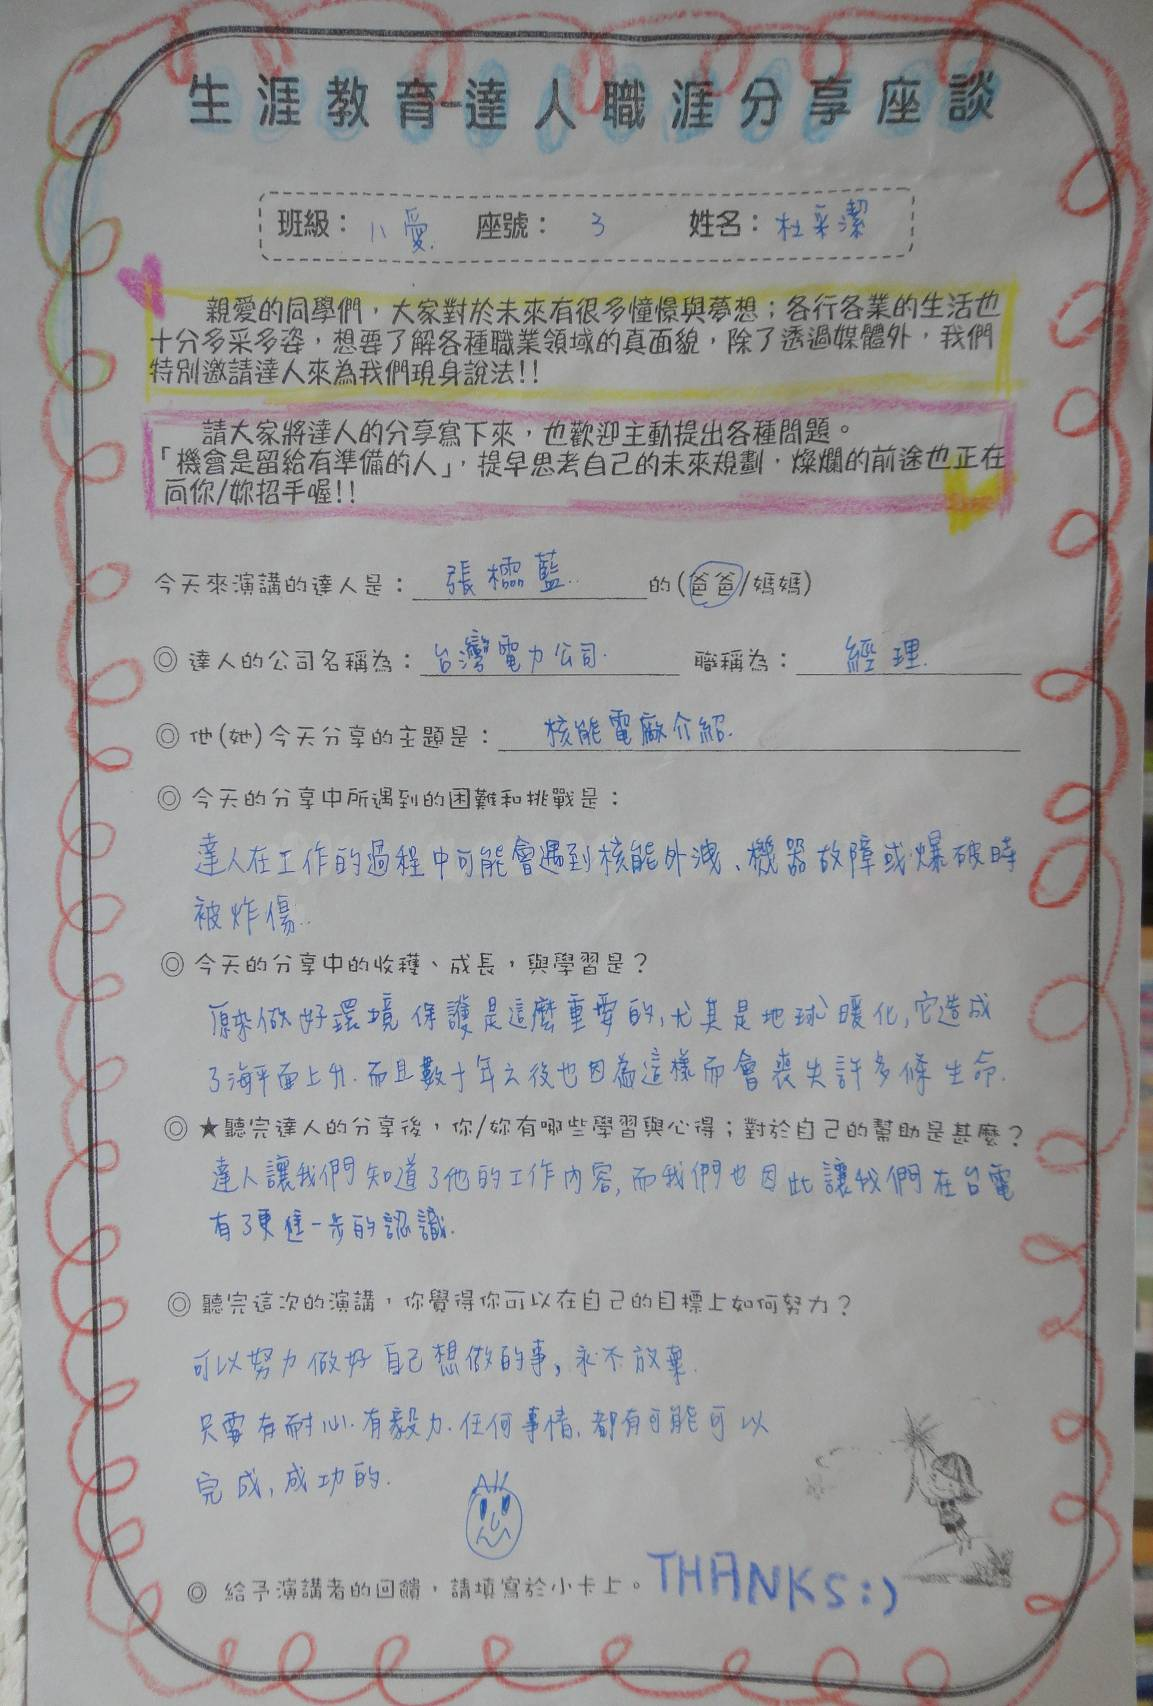 生涯教育-達人職涯分享座談
班級：八愛 座號：3 姓名：杜采潔
親愛的同學們，大家對於未來有很多憧憬與夢想；各行各業的生活也
十分多采多姿，想要了解各種職業領域的真面貌，除了透過媒體外，我們
特別邀請達人來為我們現身說法!!
請大家將達人的分享寫下來，也歡迎主動提出各種問題。
「機會是留給有準備的人」，提早思考自己的未來規劃，燦爛的前途也正在
向你/妳招手喔!!
今天來演講的達人是：張櫺藍 的(爸爸/媽媽)
◎ 達人的公司名稱為：台灣電力公司. 職稱為：經理.
◎ 他(她)今天分享的主題是：核能電廠介紹.
◎ 今天的分享中所遇到的困難和挑戰是：
達人在工作的過程中可能會遇到核能外洩、機器故障或爆破時
被炸傷..
◎ 今天的分享中的收穫、成長，與學習是？
原來做好環境保護是這麼重要的,尤其是地球暖化,它造成
了海平面上升.而且數十年之後也因為這樣而會喪失許多條生命.
◎ ★聽完達人的分享後，你/妳有哪些學習與心得；對於自己的幫助是甚麼？
達人讓我們知道了他的工作內容,而我們也因此讓我們在台電
有了更進一步的認識.
◎ 聽完這次的演講，你覺得你可以在自己的目標上如何努力？
可以努力做好自己想做的事,永不放棄.
只要有耐心.有毅力.任何事情,都有可能可以
完成,成功的.
◎ 給予演講者的回饋，請填寫於小卡上。THANKS:)